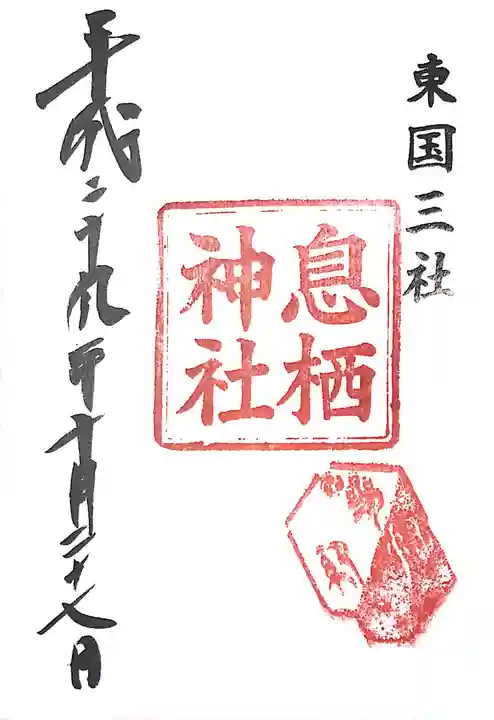 東国三社
息栖
神社
平成二十九年十月二十八日